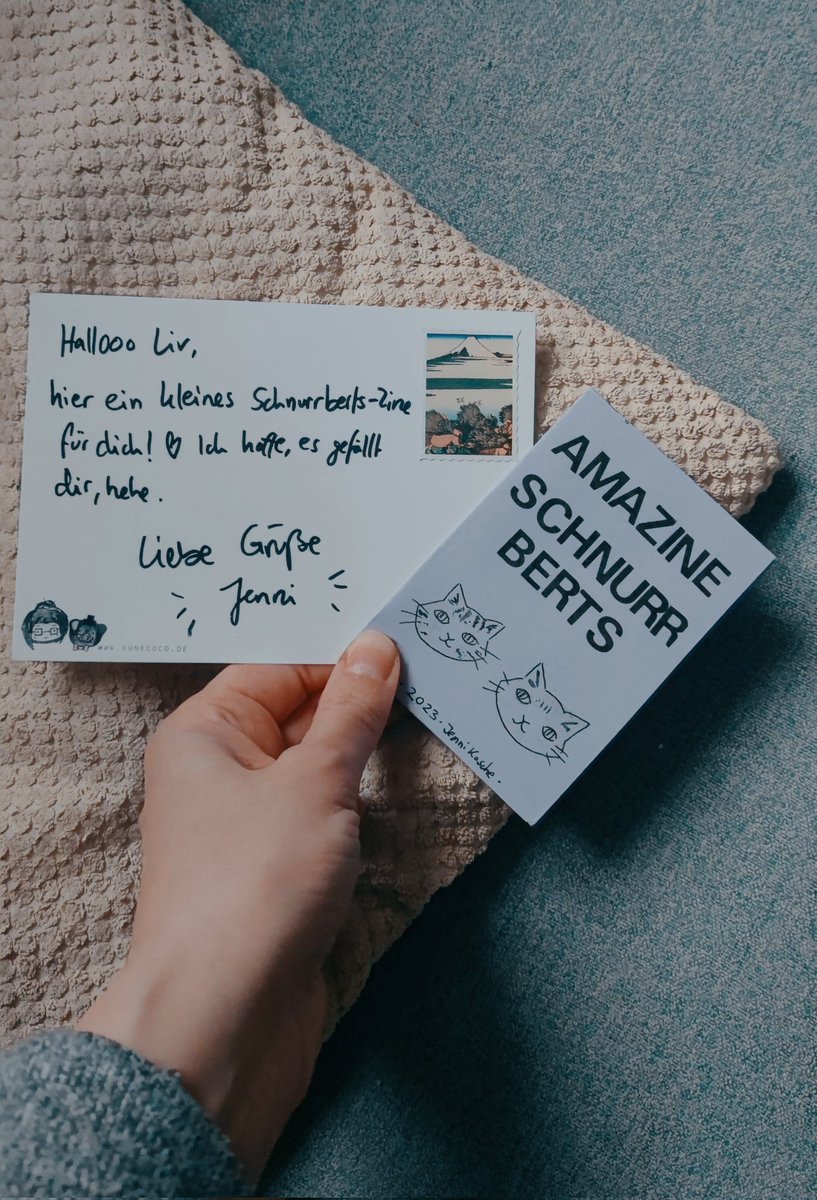 Hallooo Liv,
hier ein kleines Schnurrberts-Zine
für dich! ♡ Ich hoffe, es gefällt
dir, hehe.
Liebe Grüße
Jenni
WWW.KONECOCO.DE
AMAZINE
SCHNURR
BERTS
2023. Jenni Kosche.